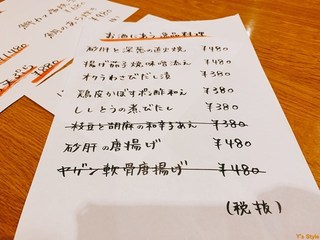 お酒にあう一品料理
砂肝と深葱の直火焼 ¥480
揚げ茄子焼味噌添え ¥480
オクラわさびだし漬 ¥380
鶏皮かぼすポン酢和え ¥380
ししとうの煮びたし ¥380
枝豆と胡麻の和辛子あえ ¥380
砂肝の唐揚げ ¥480
ヤゲン軟骨唐揚げ ¥480
(税抜)
Y's Style